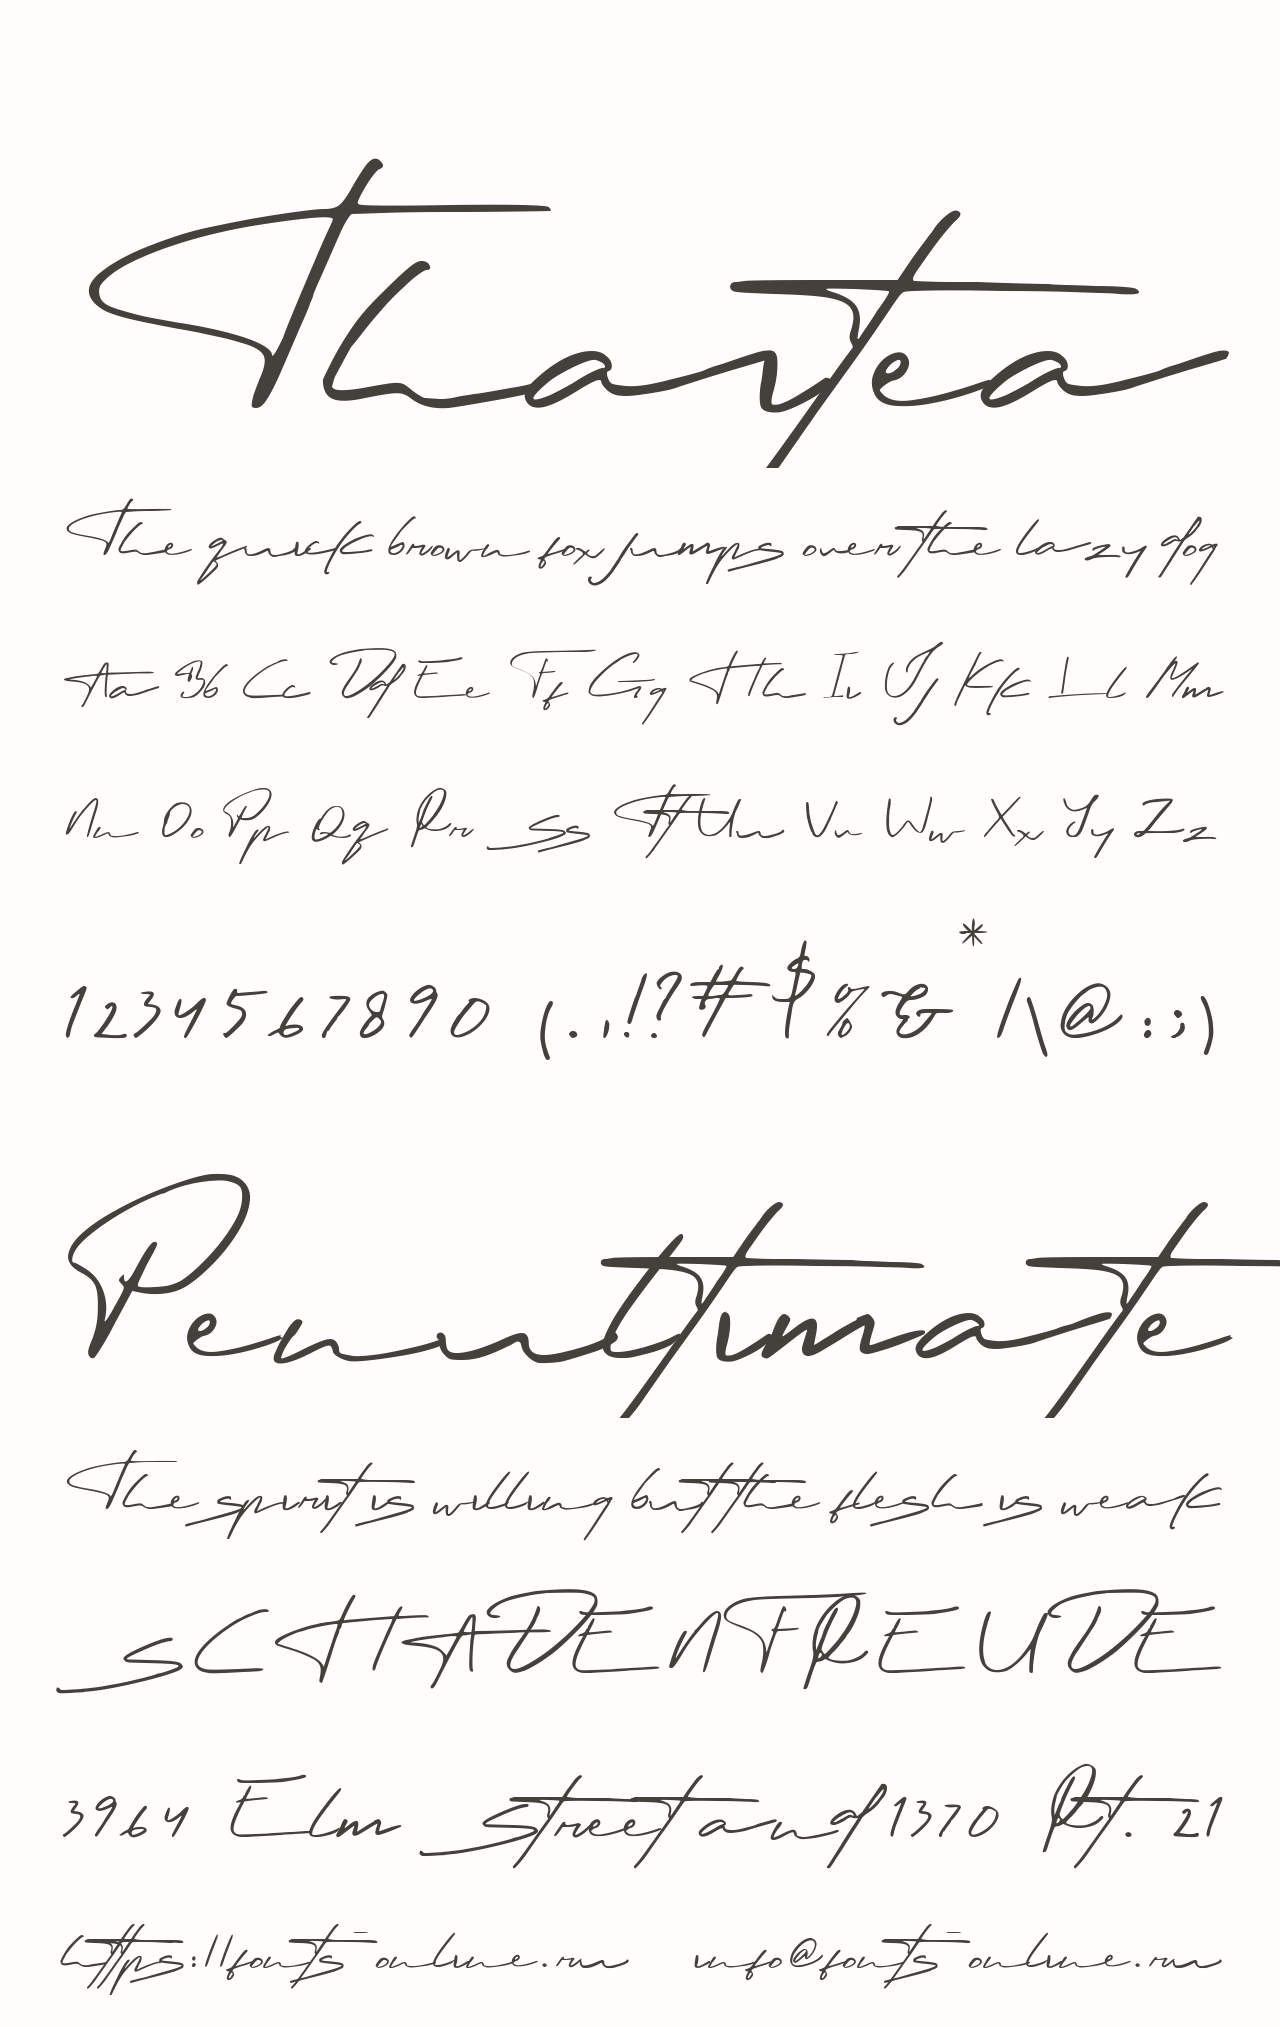 Thartea
The quick brown fox jumps over the lazy dog
Aa Bb Cc Dd Ee Ff Gg Hh Ii Jj Kk Ll Mm
Nn Oo Pp Qq Rr Ss Tt Uu Vv Ww Xx Yy Zz
1234567890 (.,!?#$%&*/\@:;)
Penultimate
The spirit is willing but the flesh is weak
SCHADENFREUDE
3964 Elm Street and 1370 Rt. 21
https://fonts-online.ru info@fonts-online.ru